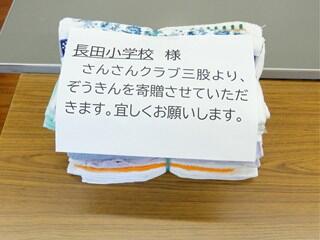 長田小学校 様
さんさんクラブ三股より、
ぞうきんを寄贈させていただ
きます。宜しくお願いします。